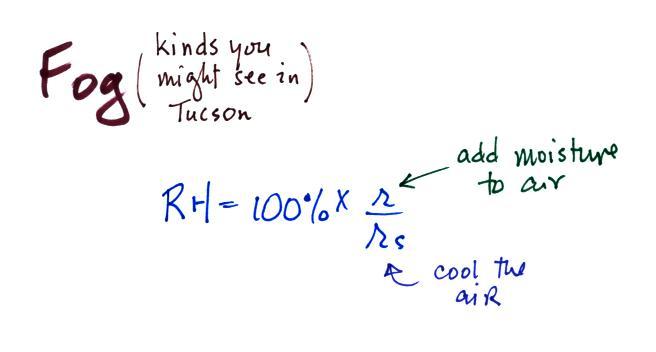 Fog (kinds you
might see in
Tucson)
add moisture
to air
RH = 100% x r
rs
cool the
air